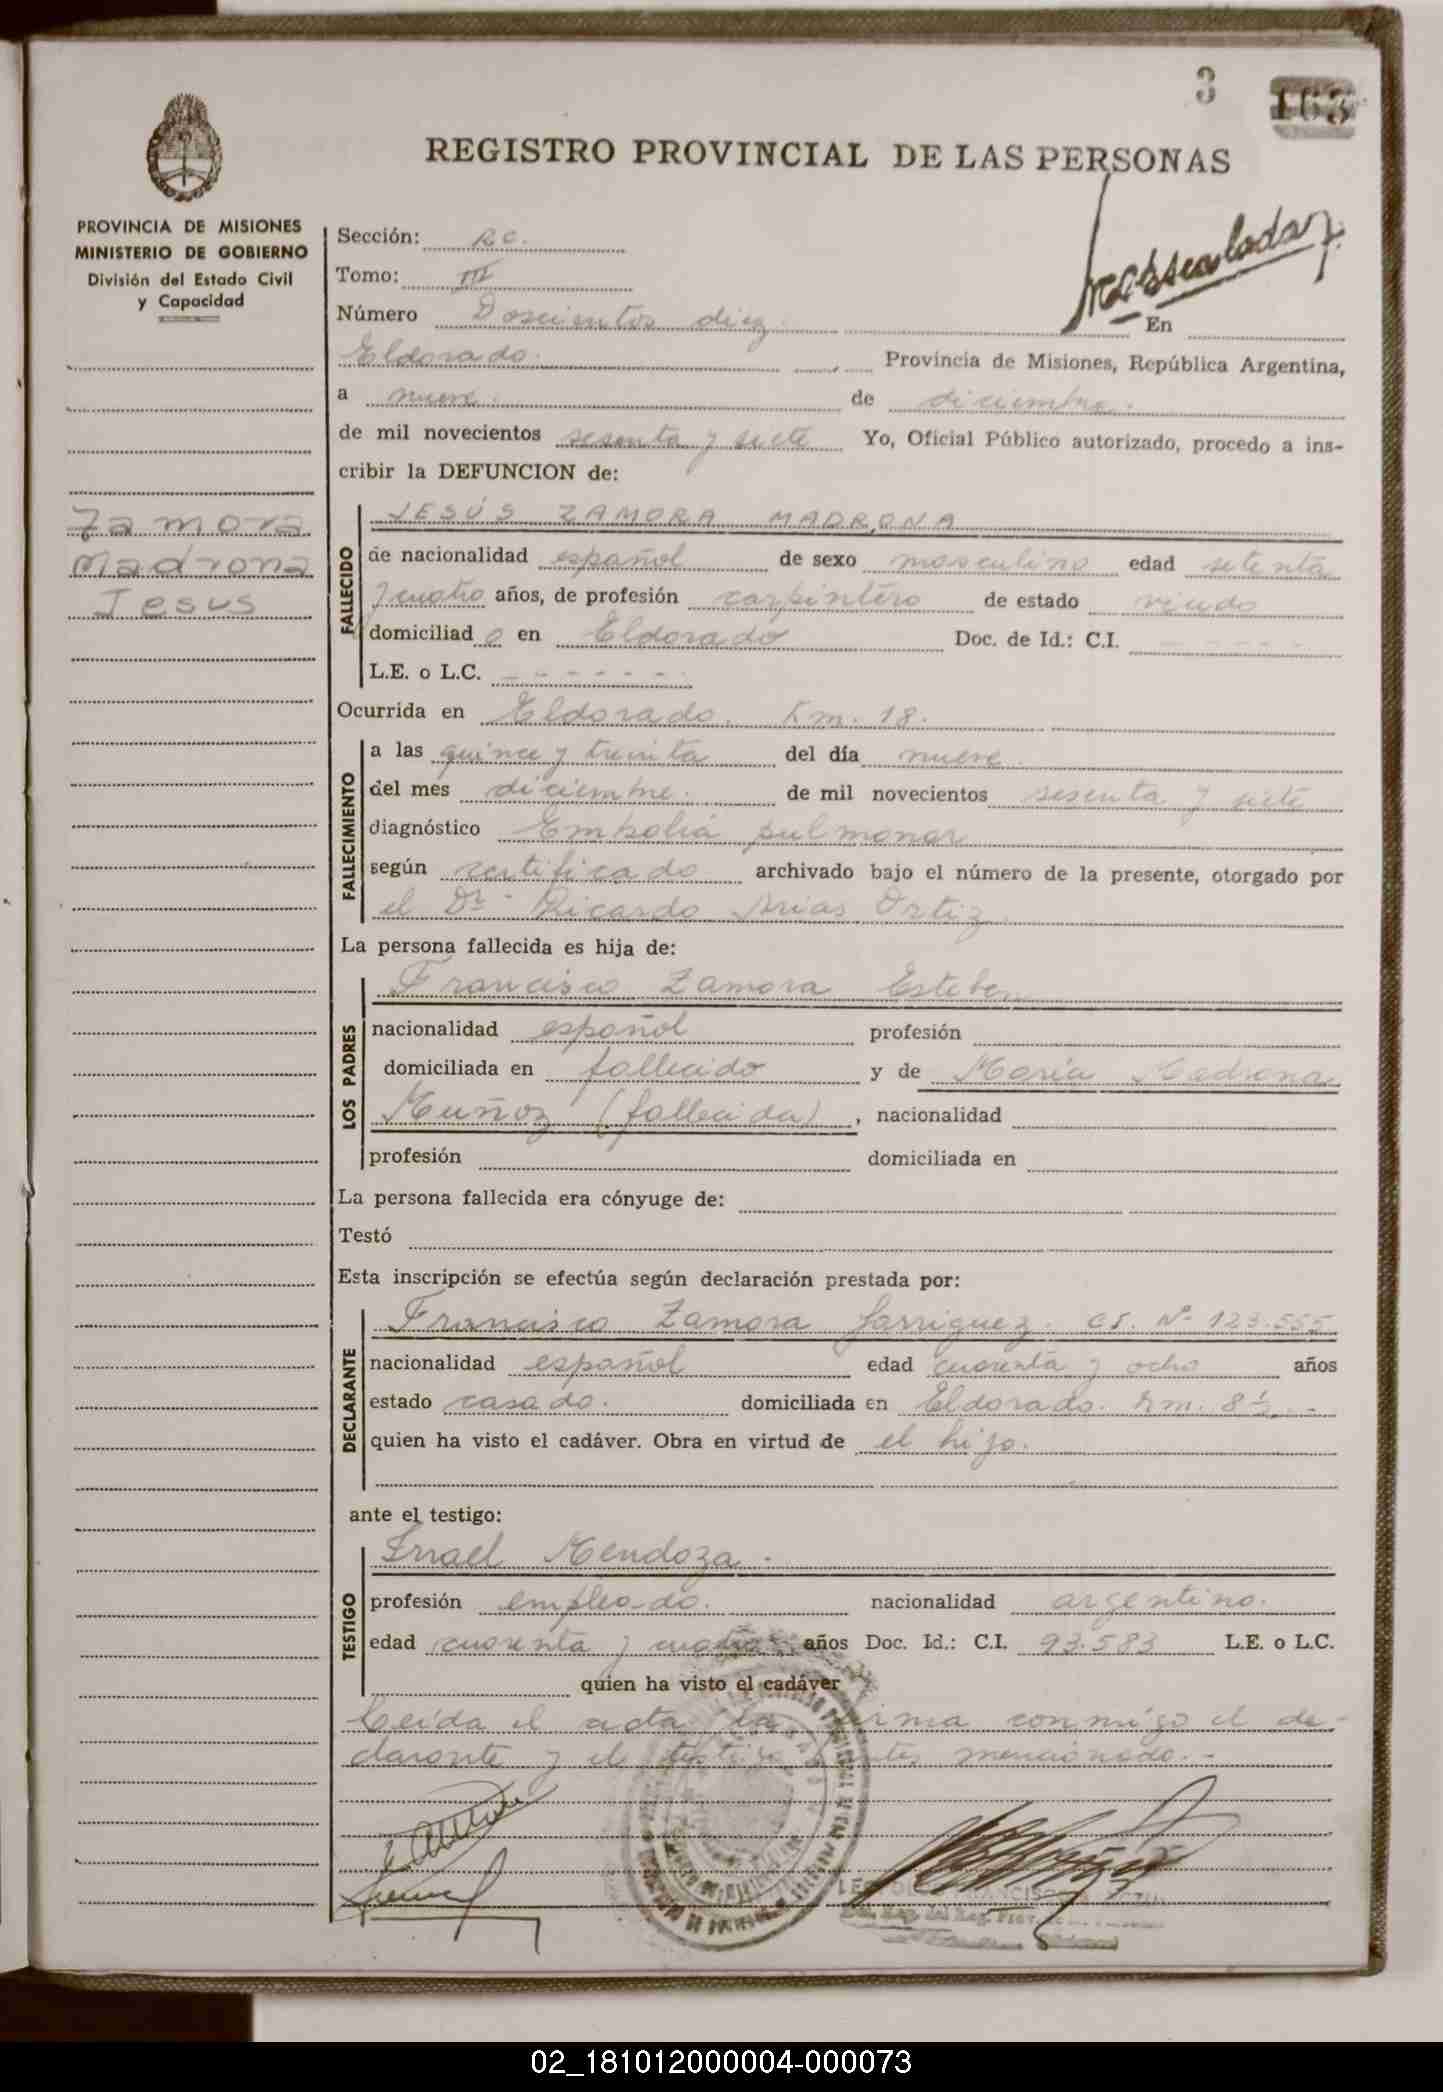 3 163
REGISTRO PROVINCIAL DE LAS PERSONAS
PROVINCIA DE MISIONES
MINISTERIO DE GOBIERNO
División del Estado Civil
y Capacidad
Zamora
Madrona
Jesus
Sección: RC.
Tomo: III
Número Doscientos diez. En
Eldorado. Provincia de Misiones, República Argentina,
a nueve. de diciembre.
de mil novecientos sesenta y siete Yo, Oficial Público autorizado, procedo a ins-
cribir la DEFUNCION de:
FALLECIDO
JESÚS ZAMORA MADRONA
de nacionalidad español de sexo masculino edad setenta
y cuatro años, de profesión carpintero de estado viudo
domiciliad o en Eldorado Doc. de Id.: C.I. - - - - -
L.E. o L.C. - - - - - - -
Ocurrida en Eldorado. Km. 18.
FALLECIMIENTO
a las quince y treinta del día nueve.
del mes diciembre. de mil novecientos sesenta y siete
diagnóstico Embolia pulmonar
según certificado archivado bajo el número de la presente, otorgado por
el Dr. Ricardo Arias Ortiz.
La persona fallecida es hija de:
LOS PADRES
Francisco Zamora Esteben
nacionalidad español profesión
domiciliada en fallecido y de María Madrona
Muñoz (fallecida), nacionalidad
profesión domiciliada en
La persona fallecida era cónyuge de:
Testó
Esta inscripción se efectúa según declaración prestada por:
DECLARANTE
Francisco Zamora Garriguez. CI. Nº 123.555
nacionalidad español edad cuarenta y ocho años
estado casado. domiciliada en Eldorado. Km. 8½. -
quien ha visto el cadáver. Obra en virtud de el hijo.
ante el testigo:
TESTIGO
Israel Mendoza.
profesión empleado. nacionalidad argentino.
edad cuarenta y cuatro años Doc. Id.: C.I. 93.583 L.E. o L.C.
quien ha visto el cadáver
Leída el acta, la firma conmigo el de-
clarante y el testigo antes mencionado. -
02_181012000004-000073